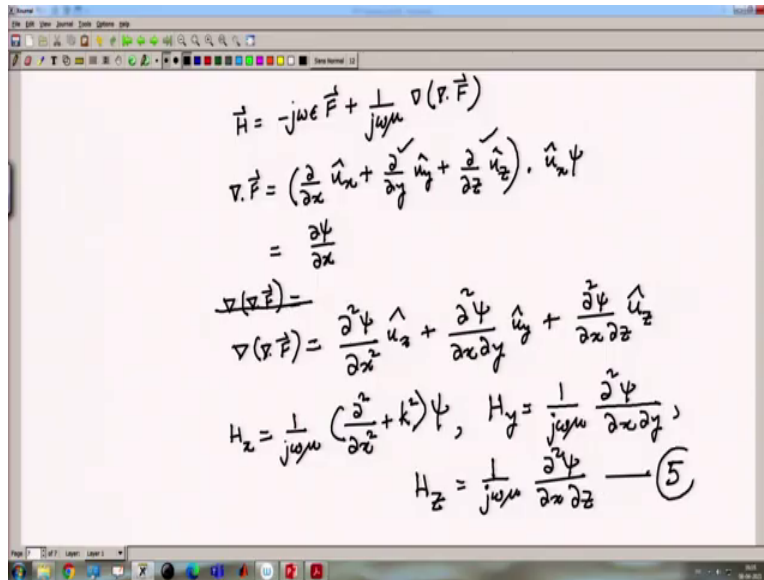 Xournal
File Edit View Journal Tools Options Help
Sans Normal 12
H⃗ = -jωϵ F⃗ + 1/jωμ ∇(∇.F⃗)
∇.F⃗ = (∂/∂x û_x + ∂/∂y û_y + ∂/∂z û_z) . û_x ψ
= ∂ψ/∂x
∇(∇.F⃗) =
∇(∇.F⃗) = ∂²ψ/∂x² û_x + ∂²ψ/∂x∂y û_y + ∂²ψ/∂x∂z û_z
H_x = 1/jωμ (∂²/∂x² + k²)ψ, H_y = 1/jωμ ∂²ψ/∂x∂y,
H_z = 1/jωμ ∂²ψ/∂x∂z — 5
Page 7 of 7 Layer: Layer 1